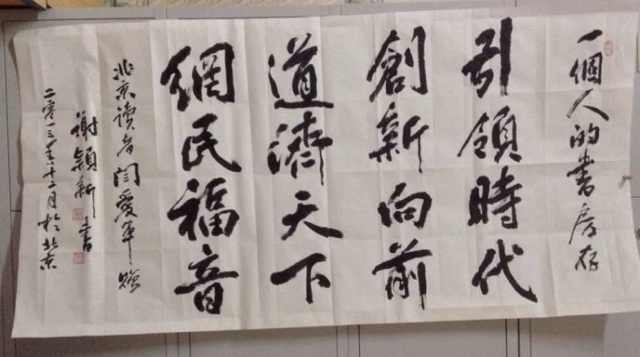 一個人的書房存
引領時代
創新向前
道濟天下
網民福音
北京读者闫爱華赠
谢穎新書
二零一三年十二月於北京